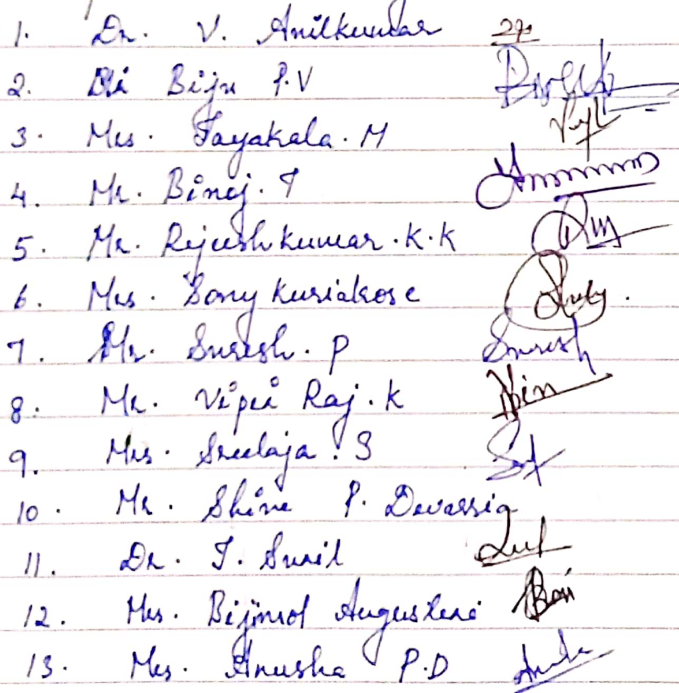 1. Dr. V. Anilkumar
2. Biju P.V
3. Mrs. Jayakala. M
4. Mr. Binoj. T
5. Mr. Rejeesh kumar. K. K
6. Mrs. Sony Kuriakose
7. Mr. Suresh. P Suresh
8. Mr. Vipin Raj. K
9. Mrs. Sreelaja. S
10. Mr. Shine P. Devassia
11. Dr. T. Sunil
12. Mrs. Bijimol Augustine
13. Mrs. Anusha P.D